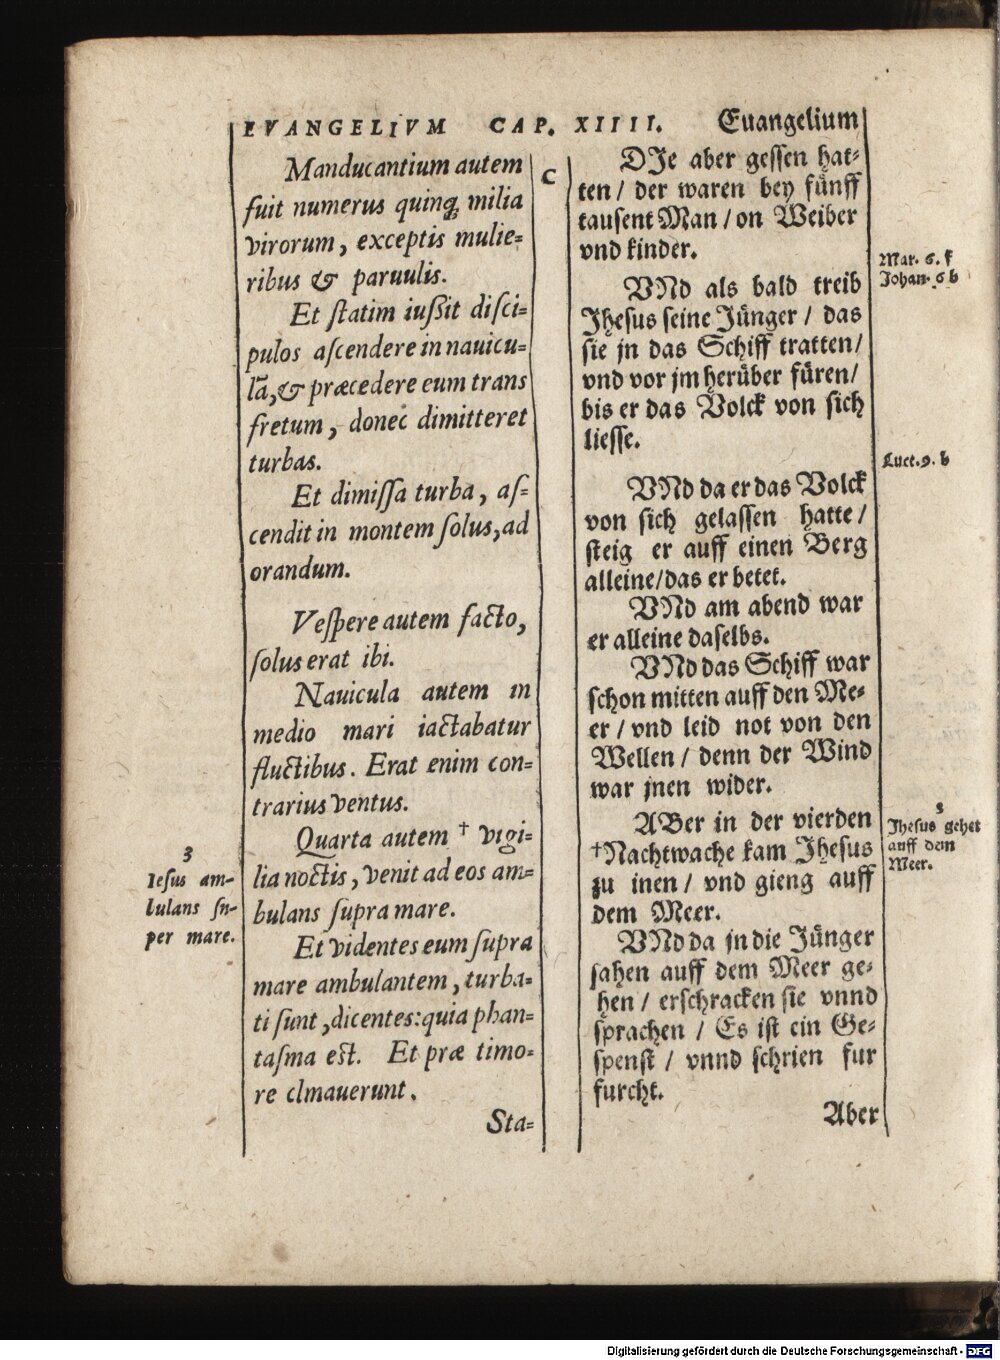 EVANGELIVM CAP. XIIII. Euangelium
Manducantium autem
fuit numerus quinq; milia
virorum, exceptis mulie-
ribus & paruulis.
Et ſtatim iuſsit diſci-
pulos aſcendere in nauicu-
lā, & præcedere eum trans
fretum, donec dimitteret
turbas.
Et dimiſſa turba, aſ-
cendit in montem ſolus, ad
orandum.
Veſpere autem facto,
ſolus erat ibi.
Nauicula autem in
medio mari iactabatur
fluctibus. Erat enim con-
trarius ventus.
Quarta autem † vigi-
lia noctis, venit ad eos am-
bulans ſupra mare.
Et videntes eum ſupra
mare ambulantem, turba-
ti ſunt, dicentes: quia phan-
taſma eſt. Et præ timo-
re clmauerunt.
Sta-
3
Ieſus am-
bulans ſu-
per mare.
C
DIe aber geſſen hat-
ten / der waren bey fünff
tauſent Man / on Weiber
vnd kinder.
VNd als bald treib
Jheſus ſeine Jünger / das
ſie jn das Schiff tratten /
vnd vor jm herüber füren /
bis er das Volck von ſich
lieſſe.
VNd da er das Volck
von ſich gelaſſen hatte /
ſteig er auff einen Berg
alleine / das er betet.
VNd am abend war
er alleine daſelbs.
VNd das Schiff war
ſchon mitten auff den Me-
er / vnd leid not von den
Wellen / denn der Wind
war jnen wider.
ABer in der vierden
†Nachtwache kam Jheſus
zu inen / vnd gieng auff
dem Meer.
VNd da jn die Jünger
ſahen auff dem Meer ge-
hen / erſchracken ſie vnnd
ſprachen / Es iſt ein Ge-
ſpenſt / vnnd ſchrien fur
furcht.
Aber
Mar. 6. f
Johan. 6 b
Luct. 9. b
3
Jheſus gehet
auff dem
Meer.
Digitalisierung gefördert durch die Deutsche Forschungsgemeinschaft - DFG